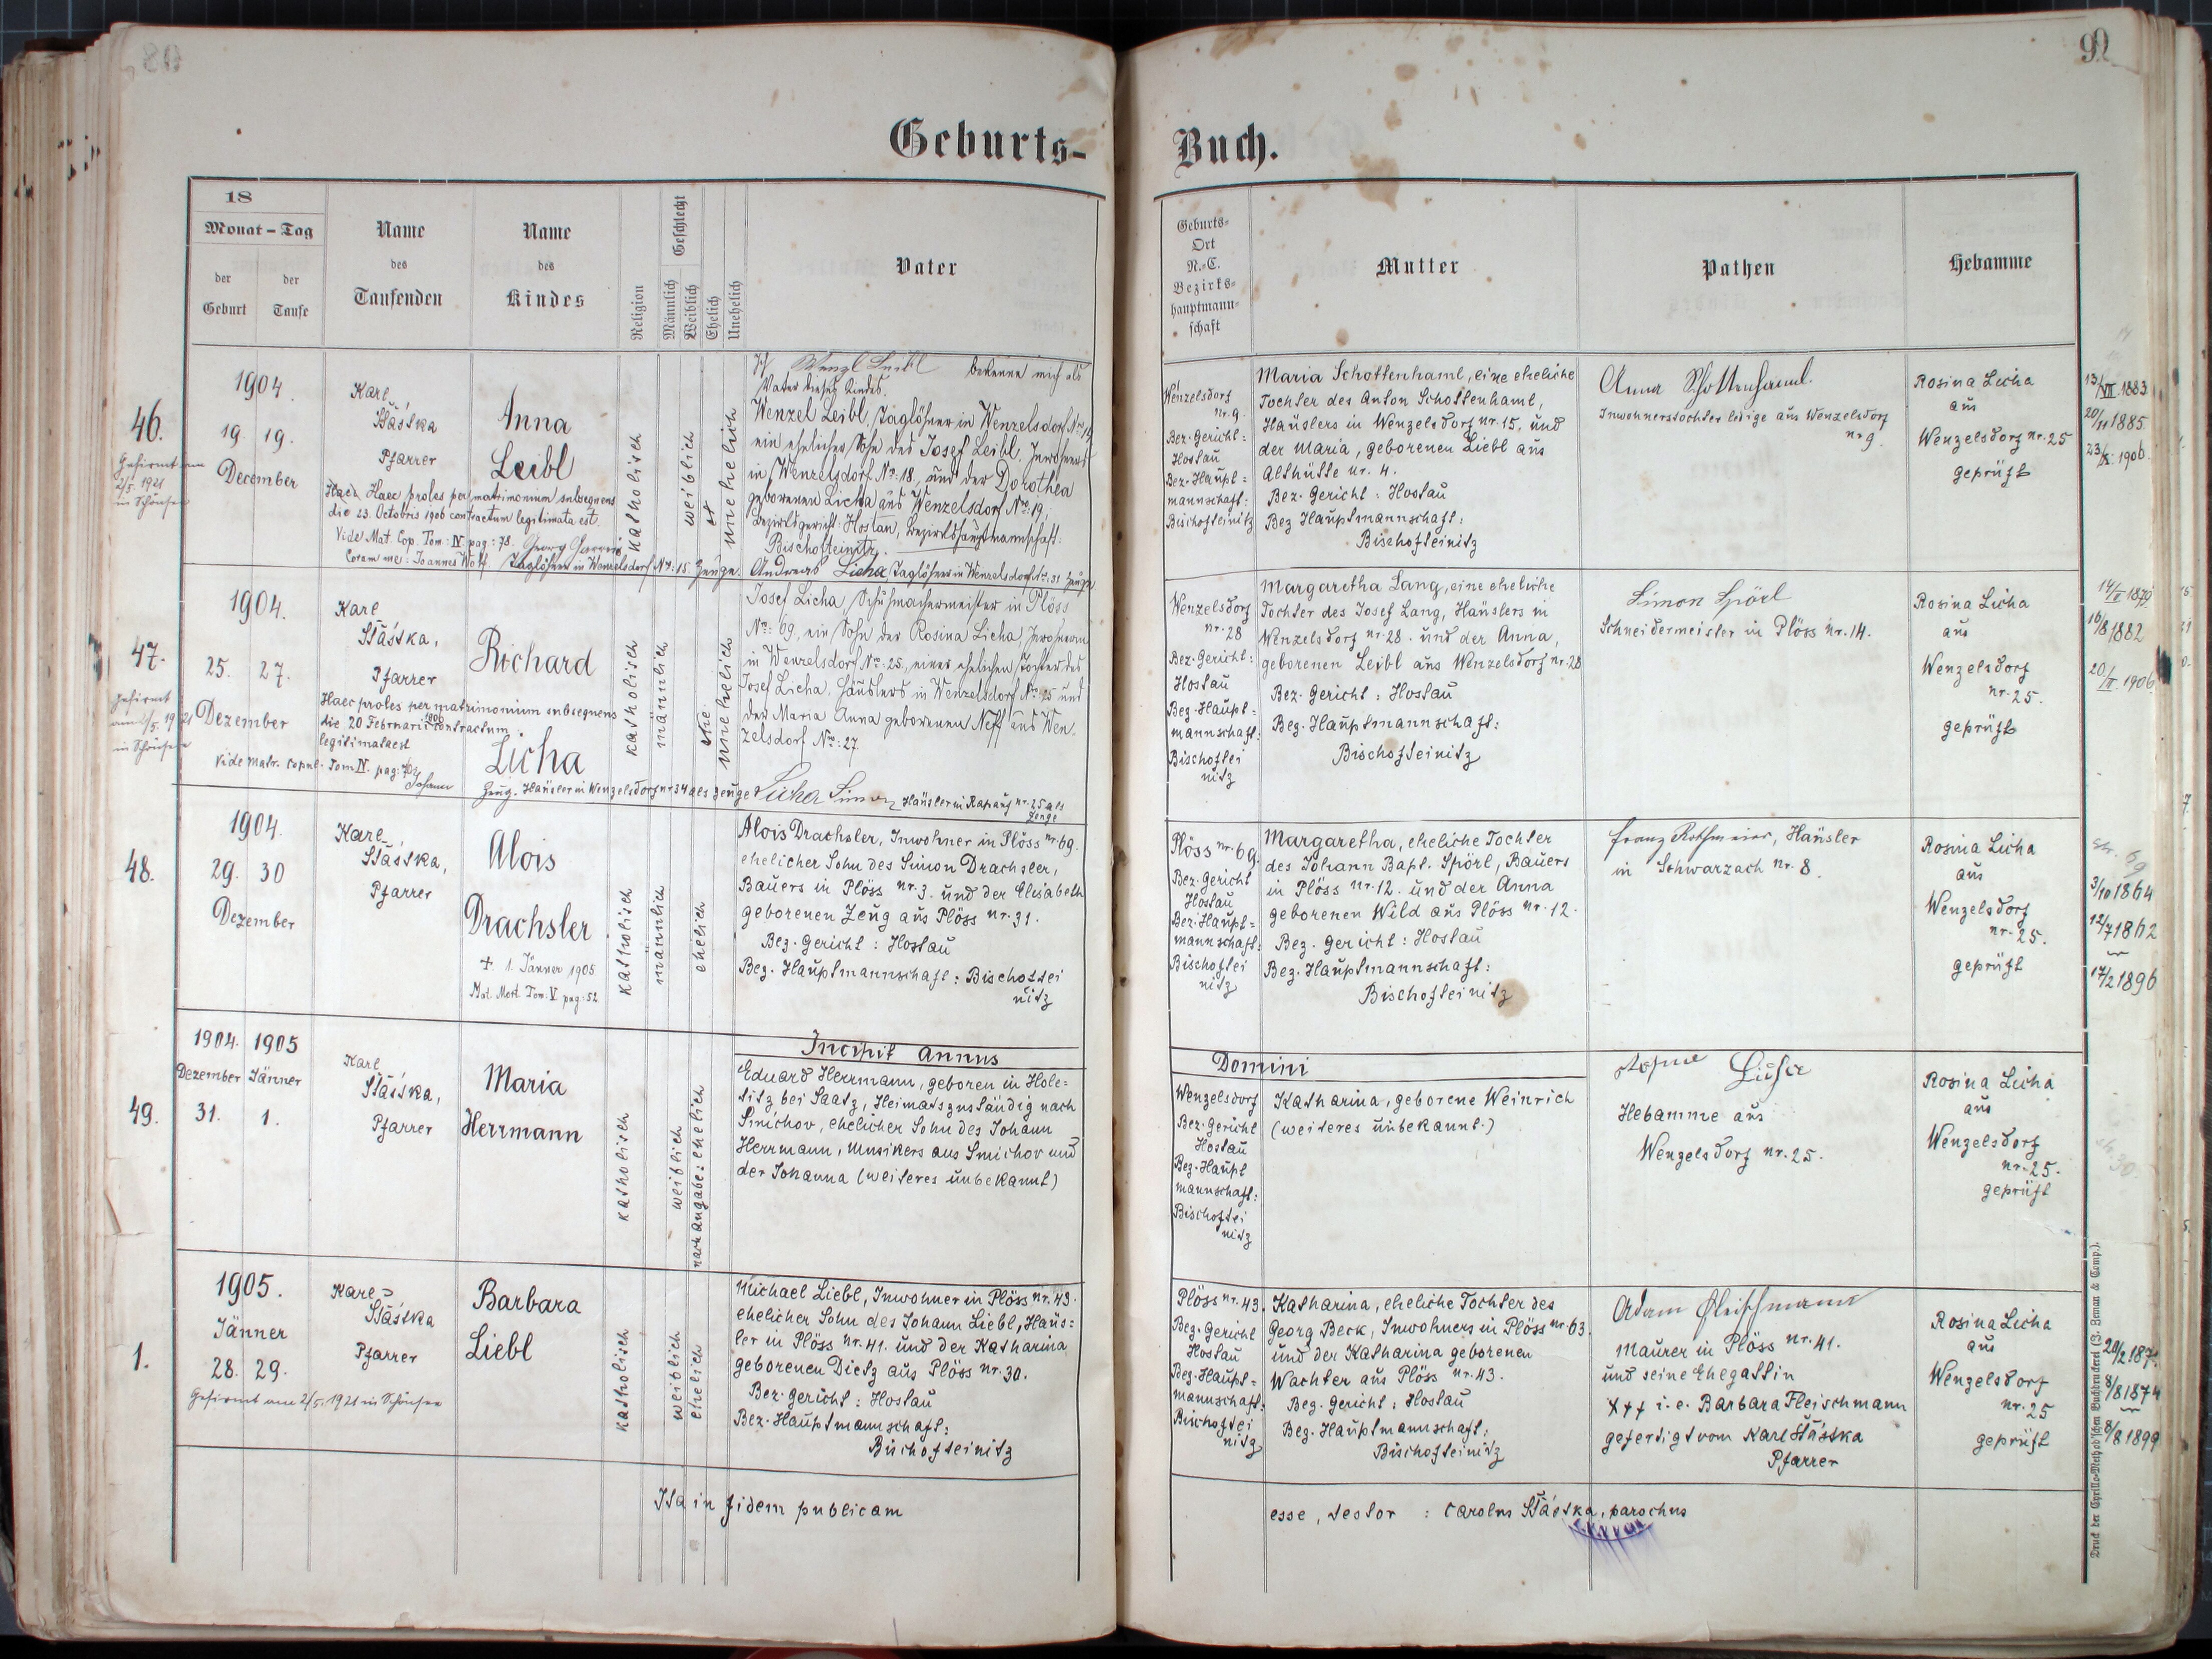 90
Geburts-
Buch.
18
Monat - Tag
der Geburt
der Taufe
Name
des
Taufenden
Name
des
Kindes
Religion
Männlich
Weiblich
Geschlecht
Ehelich
Unehelich
Vater
Geburts-
Ort
N.-C.
Bezirks-
hauptmann-
schaft
Mutter
Pathen
Hebamme
46.
Gefirmt am
2/5. 1921
in Schönsee
1904.
19. 19.
December
Karl
Šťastka
Pfarrer
Haec proles per matrimonium subsequens
die 23. Octobris 1906 contractum legitimata est.
Vide Mat. Cop. Tom: IV. pag: 78.
Coram me: Joannes Wolf.
Taglöhner in Wenzelsdorf No: 15. Zeuge.
Anna
Leibl
katholisch
weiblich
unehelich
Ich Wenzl Leibl bekenne mich als
Vater dieses Kindes.
Wenzel Leibl, Taglöhner in Wenzelsdorf No. 19,
ein ehelicher Sohn des Josef Leibl, Inwohners
in Wenzelsdorf No. 18, und der Dorothea
geborenen Licha aus Wenzelsdorf No. 19;
Bezirksgericht: Hostau, Bezirkshauptmannschaft:
Bischofteinitz.
Andreas Licha, Taglöhner in Wenzelsdorf No. 31 Zeuge
Wenzelsdorf
nr. 9.
Bez. Gericht:
Hostau
Bez. Haupt=
mannschaft:
Bischofteinitz
Maria Schottenhaml, eine eheliche
Tochter des Anton Schottenhaml,
Häuslers in Wenzelsdorf nr. 15. und
der Maria, geborenen Liebl aus
Althütte nr. 4.
Bez. Gericht: Hostau
Bez. Hauptmannschaft:
Bischofteinitz
Anna Schottenhaml.
Inwohnerstochter ledige aus Wenzelsdorf
nr 9.
Rosina Licha
aus
Wenzelsdorf nr. 25
geprüft
13/VII. 1883
20/11 1885
23/X. 1906
47.
Gefirmt
am 2/5. 1921
in Schönsee
1904.
25. 27.
Dezember
Karl
Šťastka,
Pfarrer
Haec proles per matrimonium subsequens
die 20 Februarii 1906 contractum
legitimata est
Vide Matr. Copul. Tom IV. pag: 70
Johann
Zeug. Häusler in Wenzelsdorf nr 34 als Zeuge
Richard
Licha
katholisch
männlich
unehelich
Josef Licha, Schuhmachermeister in Plöss
No: 69, ein Sohn der Rosina Licha, Inwohnerin
in Wenzelsdorf No: 25, einer ehelichen Tochter des
Josef Licha, Häuslers in Wenzelsdorf No: 25 und
der Maria Anna geborenen Neff aus Wen-
zelsdorf No: 27.
Licha Simon Häusler in Rapauf nr. 25 als
Zeuge
Wenzelsdorf
nr. 28
Bez. Gericht:
Hostau
Bez. Haupt=
mannschaft:
Bischoftei
nitz
Margaretha Lang, eine eheliche
Tochter des Josef Lang, Häuslers in
Wenzelsdorf nr. 28. und der Anna,
geborenen Leibl aus Wenzelsdorf nr. 28
Bez. Gericht: Hostau
Bez. Hauptmannschaft:
Bischofteinitz
Simon Spörl
Schneidermeister in Plöss nr. 14.
Rosina Licha
aus
Wenzelsdorf
nr. 25.
geprüft
16/8 1882
20/II. 1906
48.
1904.
29. 30
Dezember
Karl
Šťastka,
Pfarrer
Alois
Drachsler
+ 1. Jänner 1905
Mat. Mort. Tom: V pag: 52
katholisch
männlich
ehelich
Alois Drachsler, Inwohner in Plöss nr. 69.
ehelicher Sohn des Simon Drachsler,
Bauers in Plöss nr. 3. und der Elisabeth
geborenen Zeug aus Plöss nr. 31.
Bez. Gericht: Hostau
Bez. Hauptmannschaft: Bischoftei
nitz
Plöss nr. 69
Bez. Gericht
Hostau
Bez. Haupt=
mannschaft:
Bischoftei
nitz
Margaretha, eheliche Tochter
des Johann Bapt. Spörl, Bauers
in Plöss nr. 12. und der Anna
geborenen Wild aus Plöss nr. 12.
Bez. Gericht: Hostau
Bez. Hauptmannschaft:
Bischofteinitz
Franz Rothmeier, Häusler
in Schwarzach nr. 8.
Rosina Licha
aus
Wenzelsdorf
nr. 25.
geprüft
3/10 1864
12/7 1862
17/2 1896
49.
1904. 1905
Dezember Jänner
31. 1.
Karl
Šťastka,
Pfarrer
Maria
Herrmann
katholisch
weiblich
nach Angabe: ehelich
Incipit annus
Domini
Eduard Herrmann, geboren in Hole=
titz bei Saatz, Heimatszuständig nach
Smichov, ehelicher Sohn des Johann
Herrmann, Musikers aus Smichov und
der Johanna (weiteres unbekannt)
Wenzelsdorf
Bez. Gericht
Hostau
Bez. Haupt
mannschaft:
Bischoftei
nitz
Katharina, geborene Weinrich
(weiteres unbekannt.)
Licha
Hebamme aus
Wenzelsdorf nr. 25.
Rosina Licha
aus
Wenzelsdorf
nr. 25.
geprüft
1.
1905.
Jänner
28. 29.
Gefirmt am 2/5. 1921 in Schönsee
Karl
Šťastka
Pfarrer
Barbara
Liebl
katholisch
weiblich
ehelich
Michael Liebl, Inwohner in Plöss nr. 43.
ehelicher Sohn des Johann Liebl, Häus=
ler in Plöss nr. 41. und der Katharina
geborenen Dietz aus Plöss nr. 30.
Bez. Gericht: Hostau
Bez. Hauptmannschaft:
Bischofteinitz
Plöss nr. 43.
Bez. Gericht
Hostau
Bez. Haupt=
mannschaft:
Bischoftei
nitz
Katharina, eheliche Tochter des
Georg Beck, Inwohners in Plöss nr. 63.
und der Katharina geborenen
Wachter aus Plöss nr. 43.
Bez. Gericht: Hostau
Bez. Hauptmannschaft:
Bischofteinitz
Adam Fleischmann
Maurer in Plöss nr. 41.
und seine Ehegattin
+++ i. e. Barbara Fleischmann
gefertigt vom Karl Šťastka
Pfarrer
Rosina Licha
aus
Wenzelsdorf
nr. 25
geprüft
8/8 1874
8/8 1899
Ita in fidem publicam
esse, testor : Carolus Šťastka, parochus
Druck der Cyrillo-Method'schen Buchdruckerei (J. Zeman & Comp.).